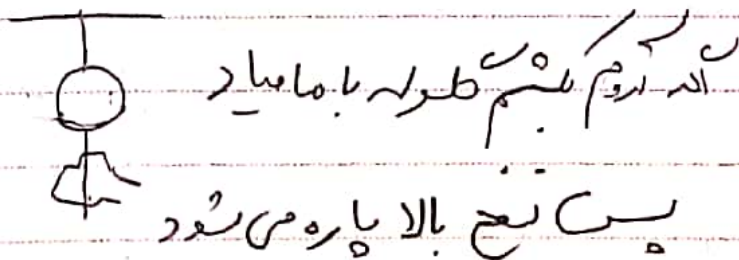 اگر آروم بکشیم گلوله با ما میاد
پس نخ بالا پاره می شود